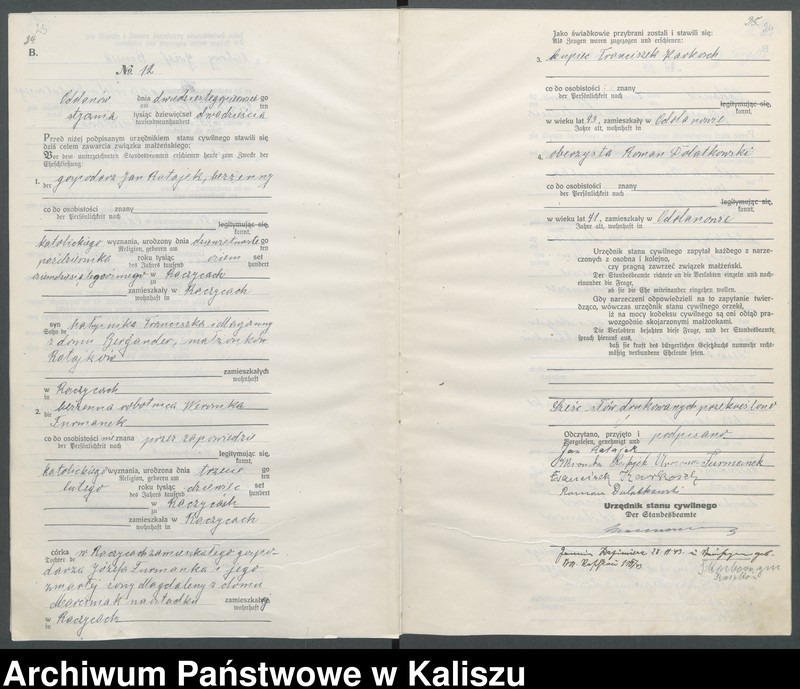 24
B.
No 12
Odolanów dnia dwudziestego go
am ten
stycznia tysiąc dziewięćset dwudziestego
tausendneunhundert
Przed niżej podpisanym urzędnikiem stanu cywilnego stawili się
dziś celem zawarcia związku małżeńskiego:
Vor dem unterzeichneten Standesbeamten erschienen heute zum Zwecke der
Eheschließung:
1. gospodarz Jan Ratajek, bezżenny
der
co do osobistości znany
der Persönlichkeit nach
legitymując się,
kannt,
katolickiego wyznania, urodzony dnia dziewiętnastego go
Religion, geboren am ten
października roku tysiąc ośm set
des Jahres tausend hundert
w Raczycach
zu
zamieszkały w Raczycach
wohnhaft in
syn Franciszka i Maryanny
Sohn de
z domu Bergander, małżonków
Ratajków
zamieszkałych
wohnhaft
w Raczycach
in
2. bezżenna robotnica Weronika
die
Furmanek
co do osobistości nie znana przez zapowiedzi
der Persönlichkeit nach
legitymując się,
kannt,
katolickiego wyznania, urodzona dnia trzeciego go
Religion, geboren am ten
lutego roku tysiąc dziewięć set
des Jahres tausend hundert
w Raczycach
zu
zamieszkała w Raczycach
wohnhaft in
córka w Raczycach zamieszkałego gospo-
Tochter de
darza Józefa Furmanka i jego
zmarłej żony Magdaleny z domu
Marciniak na ostatku zamieszkałej
wohnhaft
w Raczycach
in
25
Jako świadkowie przybrani zostali i stawili się:
Als Zeugen waren zugezogen und erschienen:
3. kupiec Franciszek
co do osobistości znany
der Persönlichkeit nach
legitymując się,
kannt,
w wieku lat 23, zamieszkały w Odolanowie
Jahre alt, wohnhaft in
4. oberzysta Roman Dolatkowski
co do osobistości znany
der Persönlichkeit nach
legitymując się,
kannt,
w wieku lat 41, zamieszkały w Odolanowie
Jahre alt, wohnhaft in
Urzędnik stanu cywilnego zapytał każdego z narze-
czonych z osobna i kolejno,
czy pragną zawrzeć związek małżeński.
Der Standesbeamte richtete an die Verlobten einzeln und nach-
einander die Frage,
ob sie die Ehe miteinander eingehen wollen.
Gdy narzeczeni odpowiedzieli na to zapytanie twier-
dząco, wówczas urzędnik stanu cywilnego orzekł,
iż na mocy kodeksu cywilnego są oni odtąd pra-
wozgodnie skojarzonymi małżonkami.
Die Verlobten bejahten diese Frage, und der Standesbeamte
sprach hierauf aus,
daß sie kraft des bürgerlichen Gesetzbuchs nunmehr recht-
mäßig verbundene Eheleute seien.
Sześć słów drukowanych przekreślono
Odczytano, przyjęto i podpisano
Vorgelesen, genehmigt und
Jan Ratajek
Weronika Ratajek Furmanek
Franciszek
Roman Dolatkowski
Urzędnik stanu cywilnego
Der Standesbeamte
Archiwum Państwowe w Kaliszu